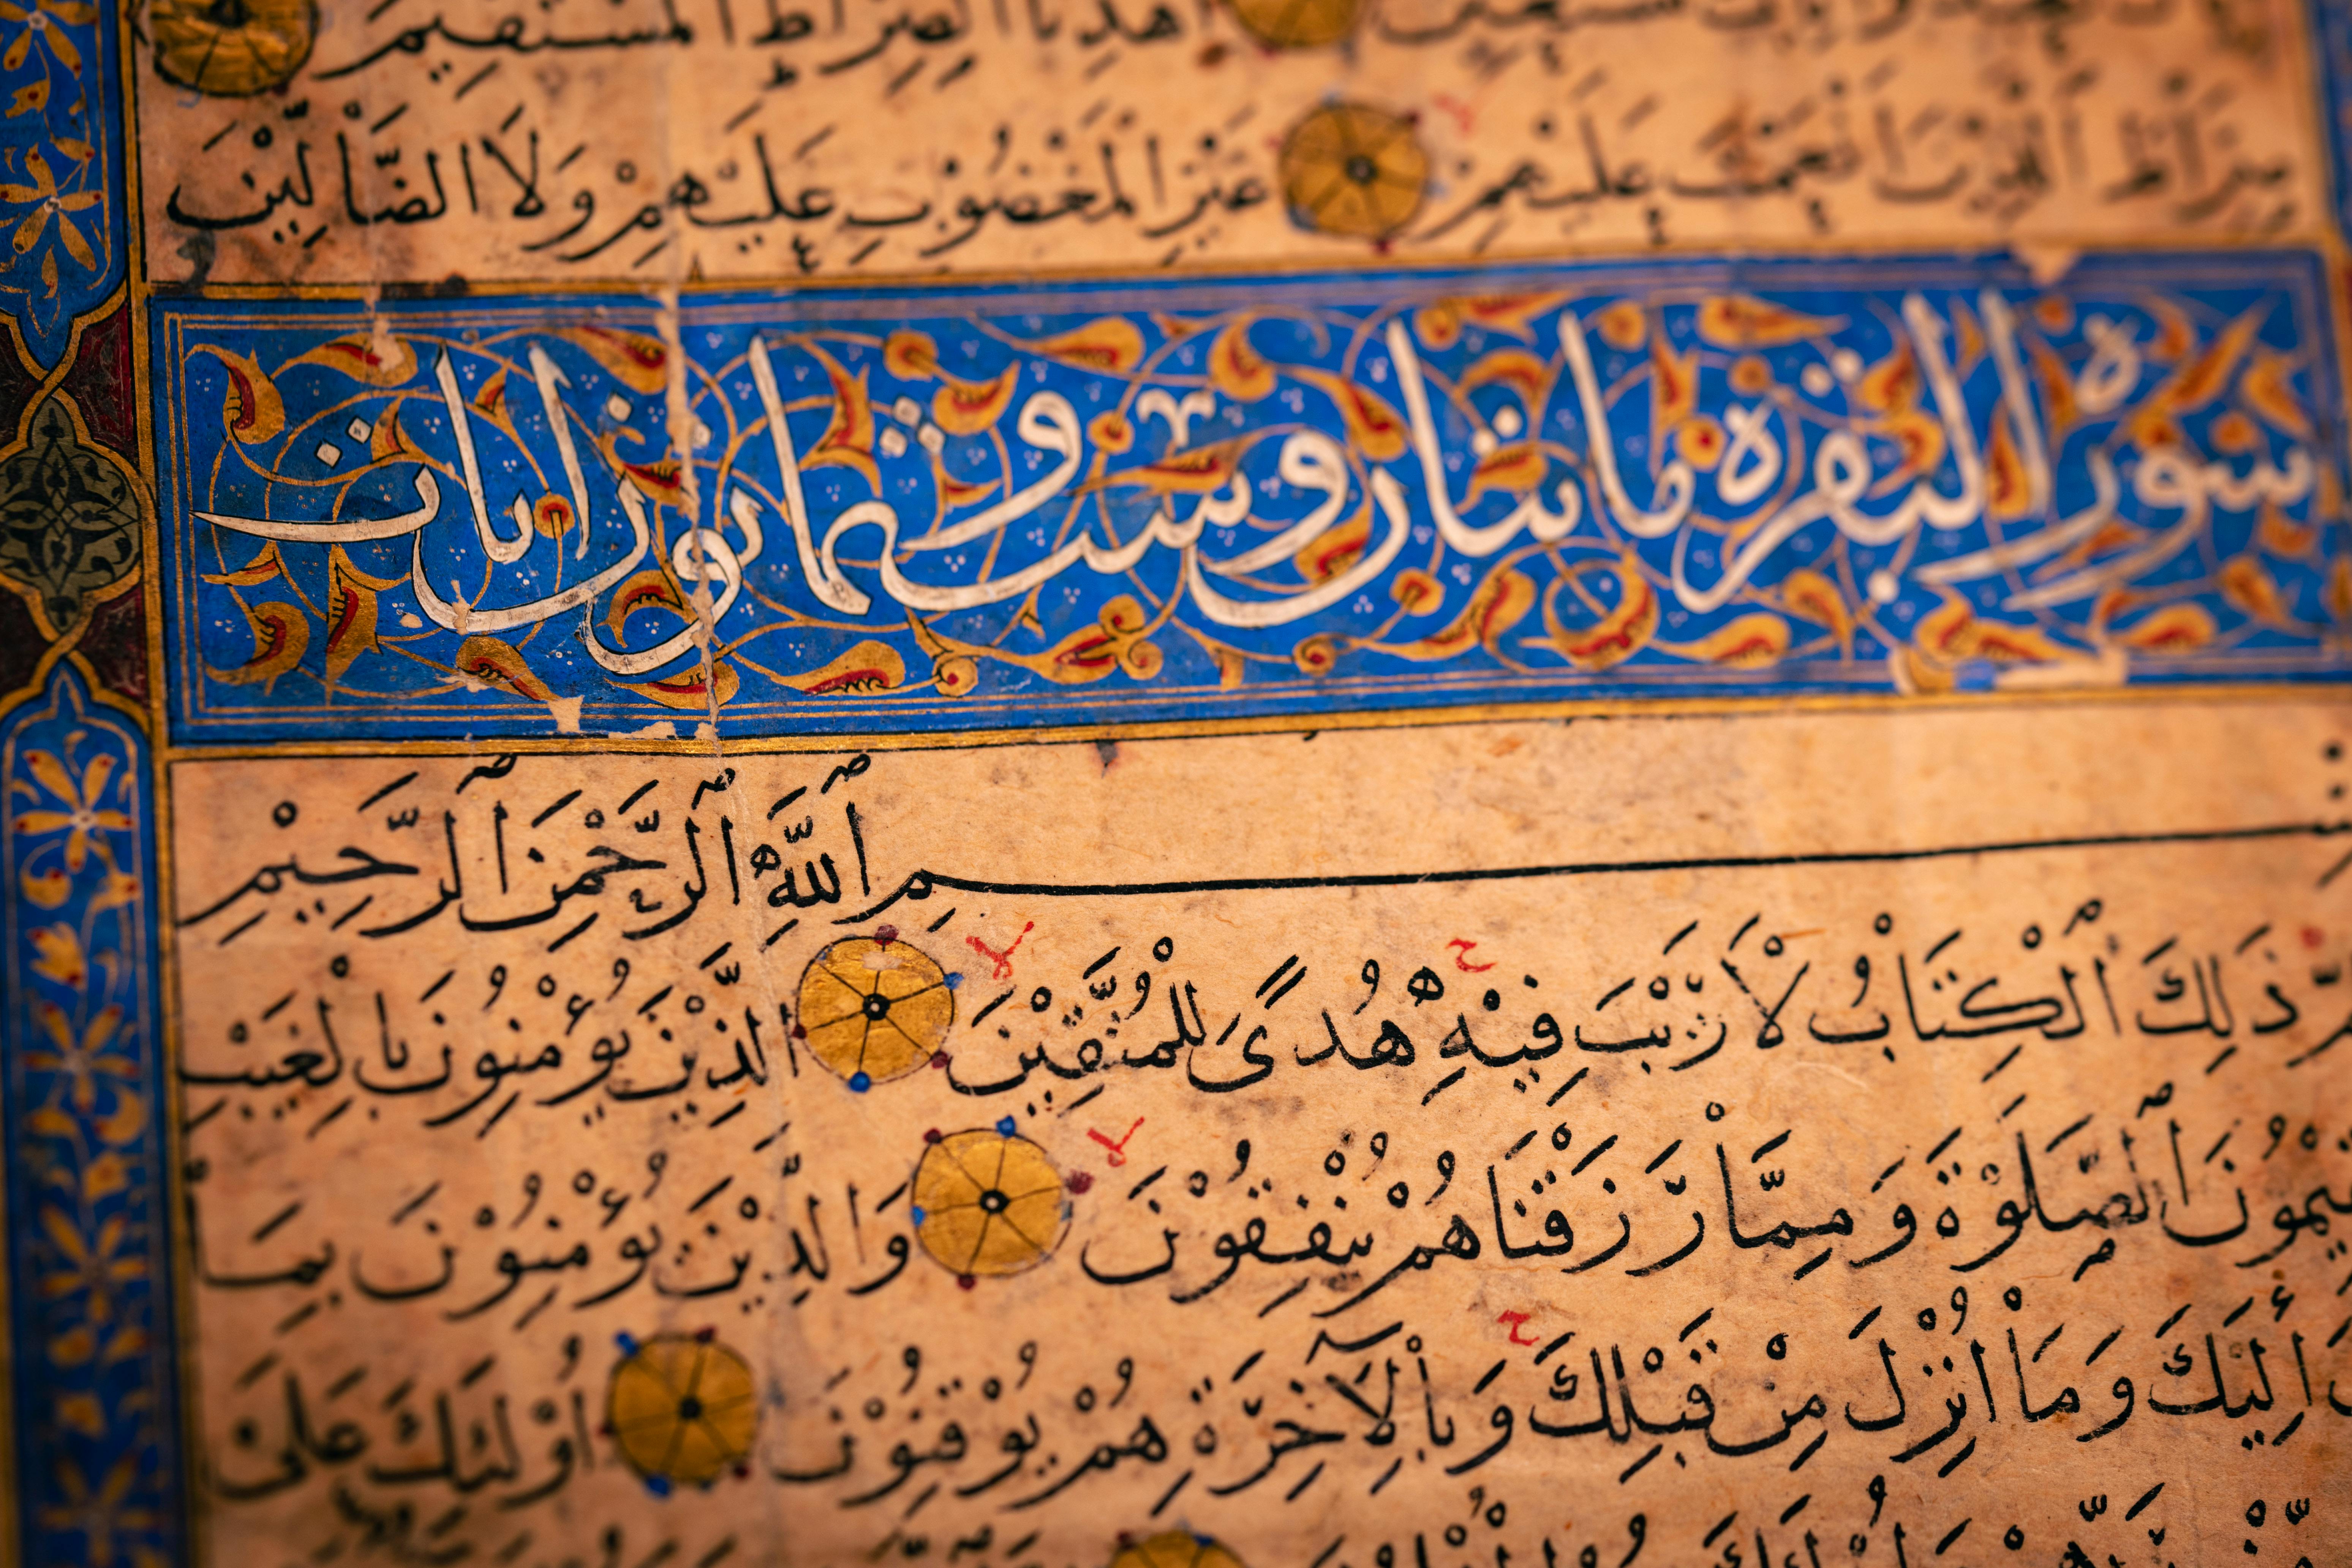 اهدنا الصراط المستقيم
صراط الذين انعمت عليهم غير المغضوب عليهم ولا الضالين
سورة البقرة مائتان وست وثمانون ايات
بسم الله الرحمن الرحيم
ذَلِكَ الْكِتَابُ لَا رَيْبَ فِيْهِ هُدًى لِلْمُتَّقِيْنَ الَّذِيْنَ يُؤْمِنُوْنَ بِالْغَيْبِ
يمُوْنَ الصَّلَوةَ وَمِمَّا رَزَقْنَاهُمْ يُنْفِقُوْنَ وَالَّذِيْنَ يُؤْمِنُوْنَ بِمَا
اِلَيْكَ وَمَا اُنْزِلَ مِنْ قَبْلِكَ وَبِالْآخِرَةِ هُمْ يُوْقِنُوْنَ اُوْلئِكَ عَلى